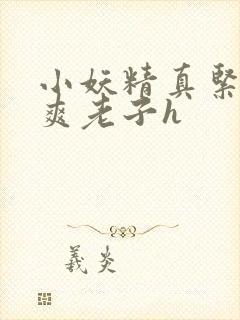 小妖精真紧
爽老子h
羲炎